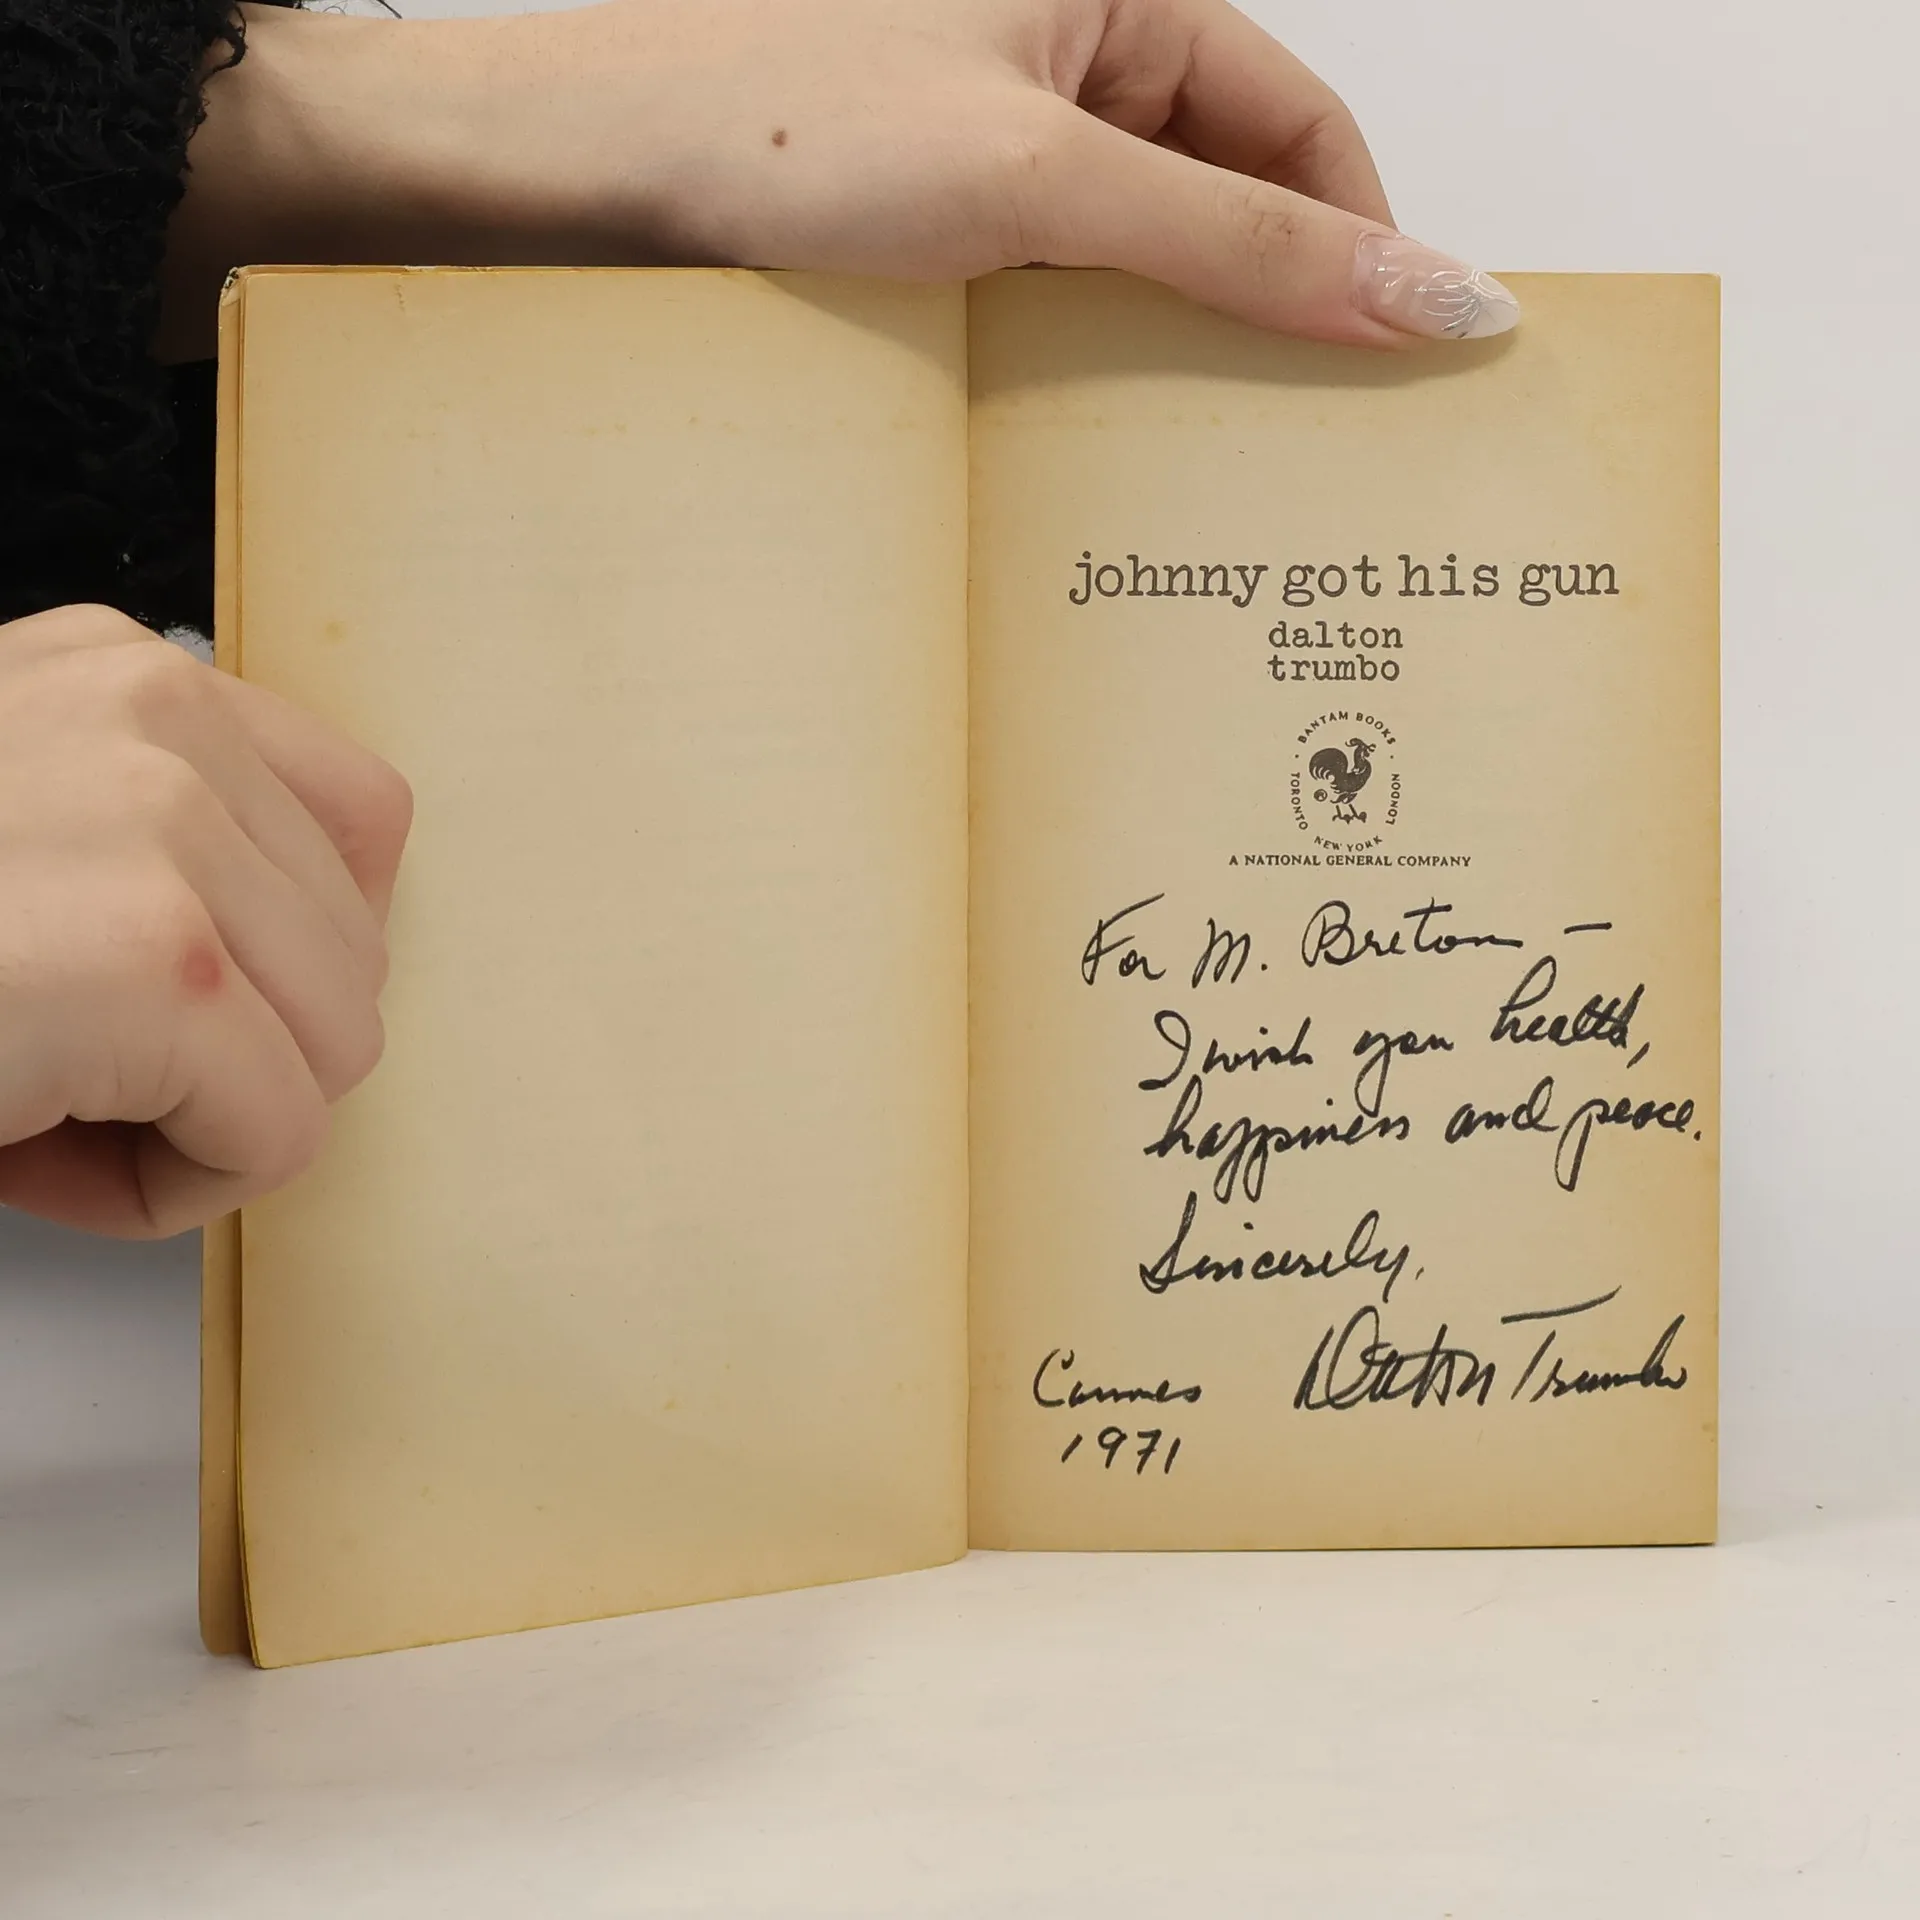 johnny got his gun
dalton
trumbo
BANTAM BOOKS
TORONTO
NEW YORK
LONDON
®
A NATIONAL GENERAL COMPANY
For M. Breton —
I wish you health,
happiness and peace.
Sincerely,
Dalton Trumbo
Cannes
1971